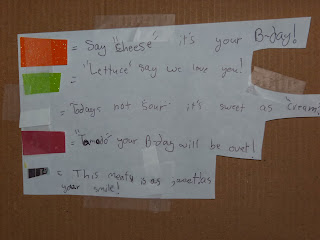 = Say "Cheese" it's your B-day!
= "Lettuce" say we love you!
= Todays not "Sour" it's sweet as "Cream"
= "Tomato" your B-day will be over!
= This menty is as sweet as
your smile!